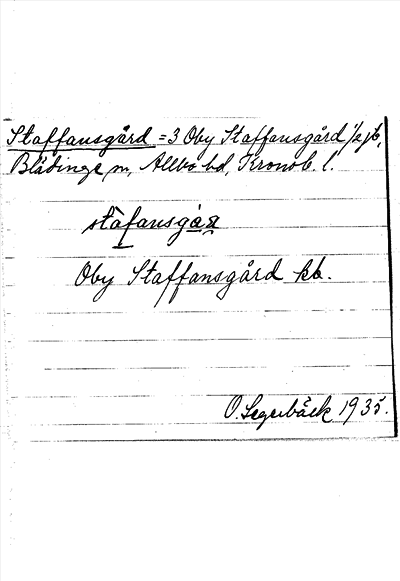 Staffansgård = 3 Oby Staffansgård 1/2 jb,
Blädinge sn, Allbo hd, Kronob. l.
Oby Staffansgård kb.
O. Segerbäck 1935.